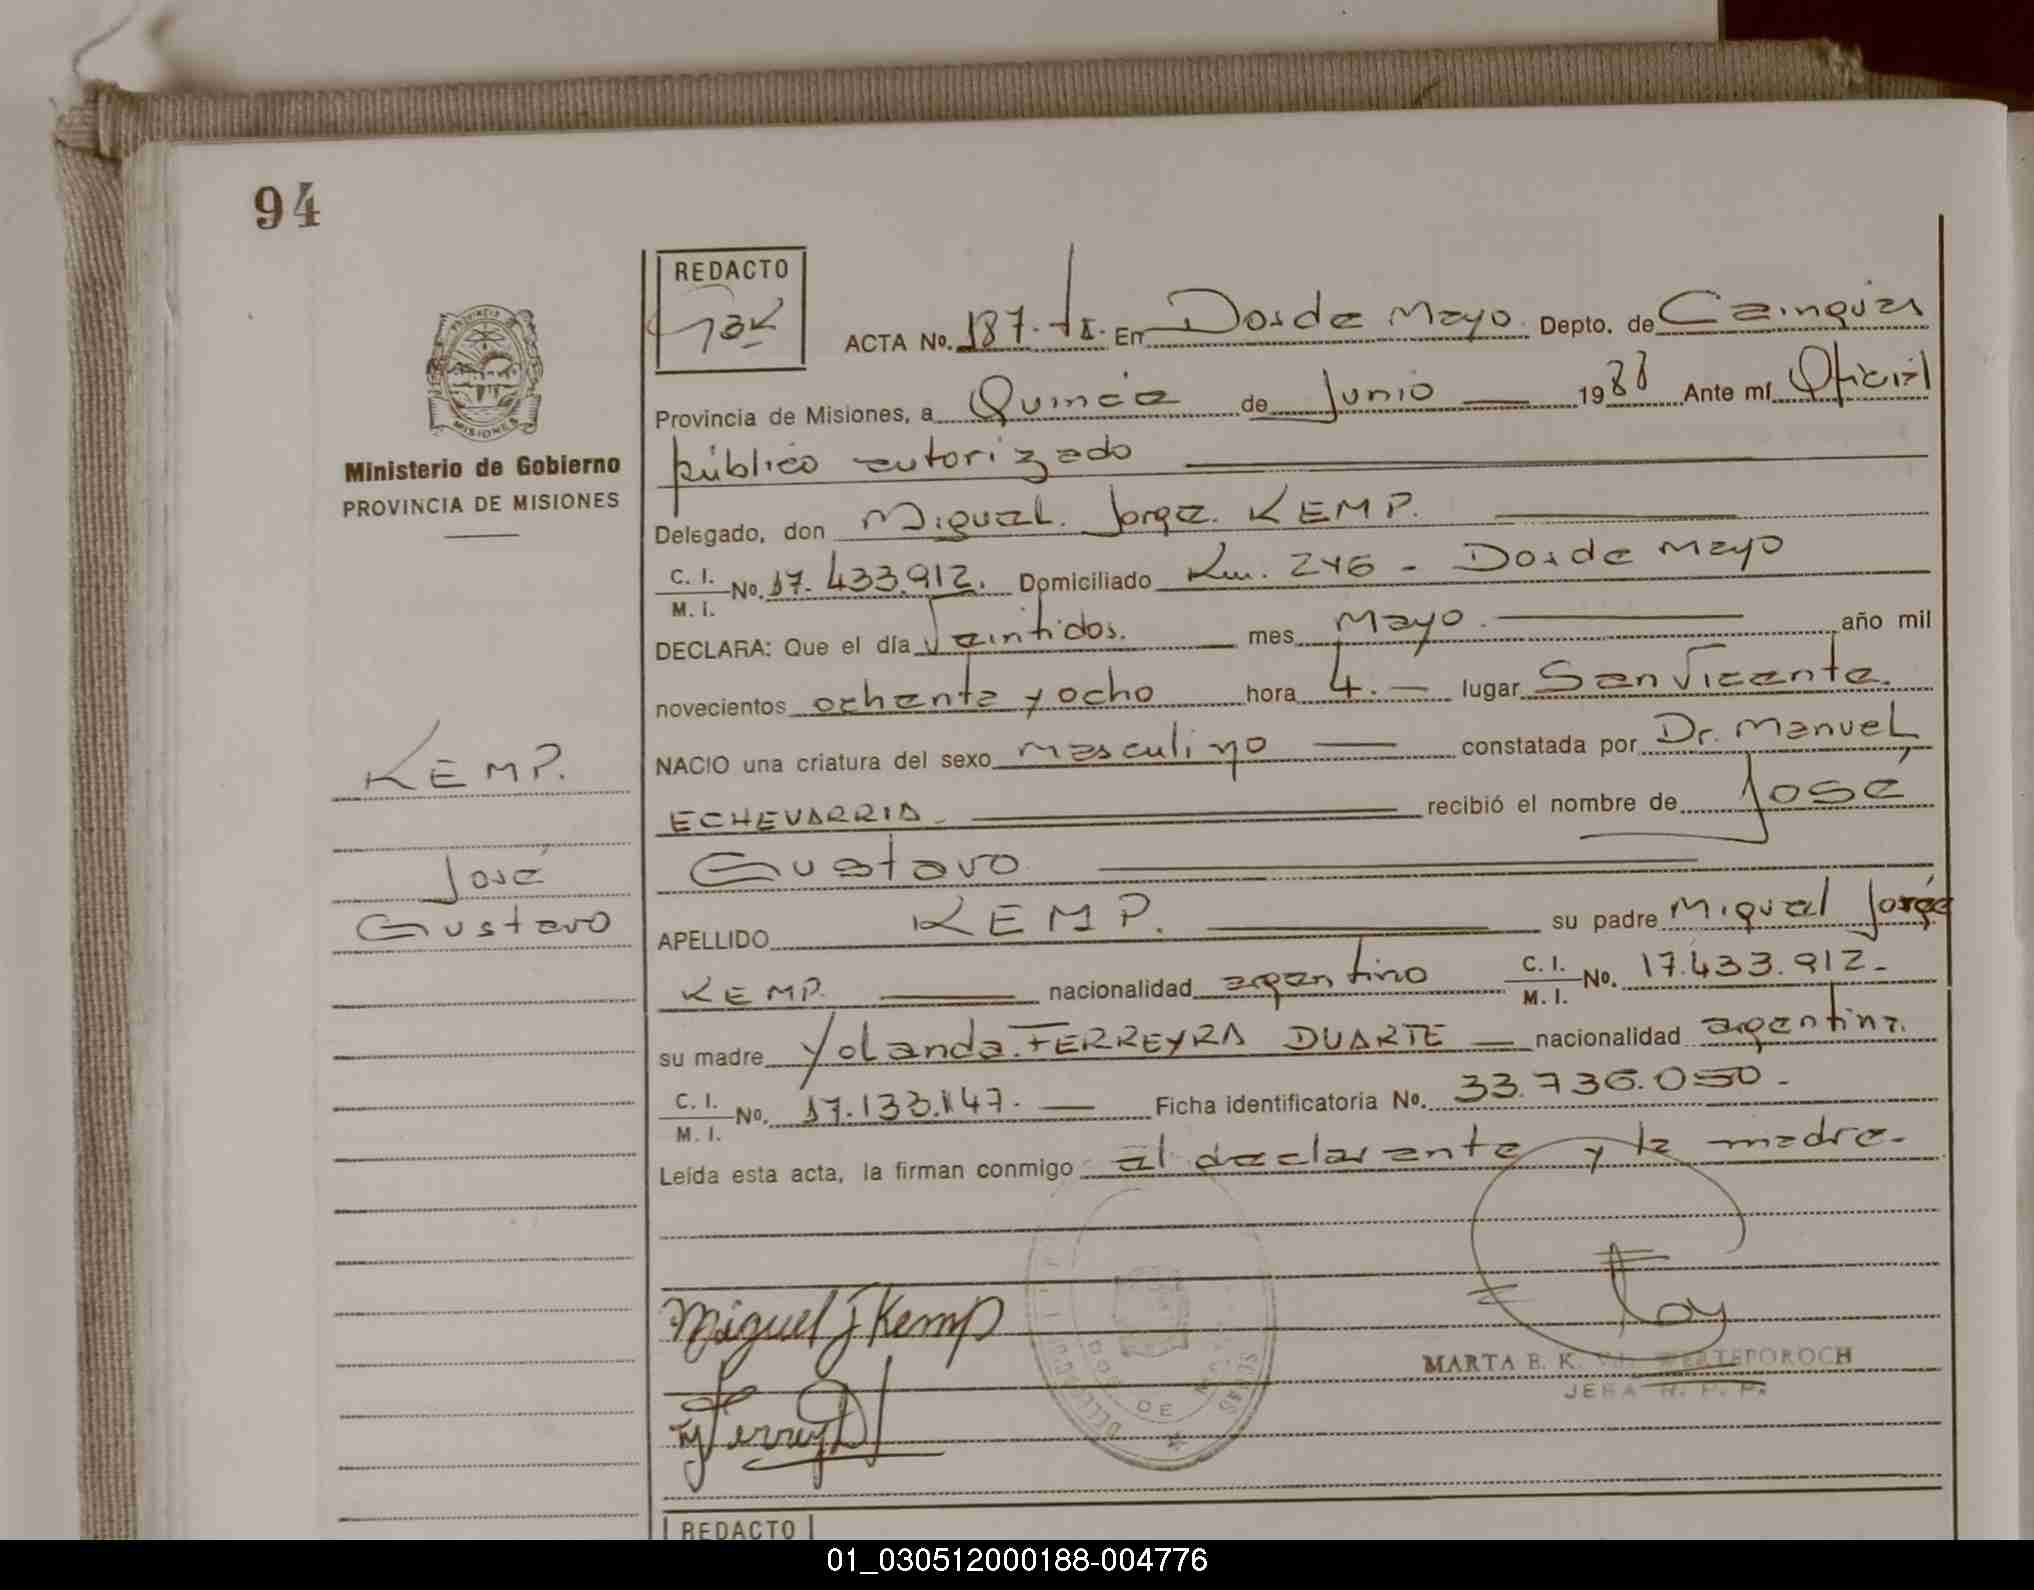 94
REDACTO
ACTA No. 187. En Dos de Mayo Depto. de Cainguás
Provincia de Misiones, a Quince de Junio 1988 Ante mí Oficial
público autorizado
PROVINCIA
MISIONES
Ministerio de Gobierno
PROVINCIA DE MISIONES
Delegado, don Miguel Jorge KEMP.
C. I.
M. I.
No. 17.433.912. Domiciliado Km. 246 - Dos de Mayo
DECLARA: Que el día Veintidos. mes Mayo. año mil
novecientos ochenta y ocho hora 4. lugar San Vicente.
NACIO una criatura del sexo masculino constatada por Dr. Manuel
ECHEVARRIA recibió el nombre de José
Gustavo
KEMP.
José
Gustavo
APELLIDO KEMP. su padre Miguel Jorge
KEMP. nacionalidad argentino C. I.
M. I.
No. 17.433.912.
su madre Yolanda FERREYRA DUARTE nacionalidad argentina.
C. I.
M. I.
No. 17.133.147. Ficha identificatoria No. 33.736.050.
Leída esta acta, la firman conmigo el declarante y la madre.
Miguel J Kemp
MARTA E. K.
DOS DE
REDACTO
01_030512000188-004776